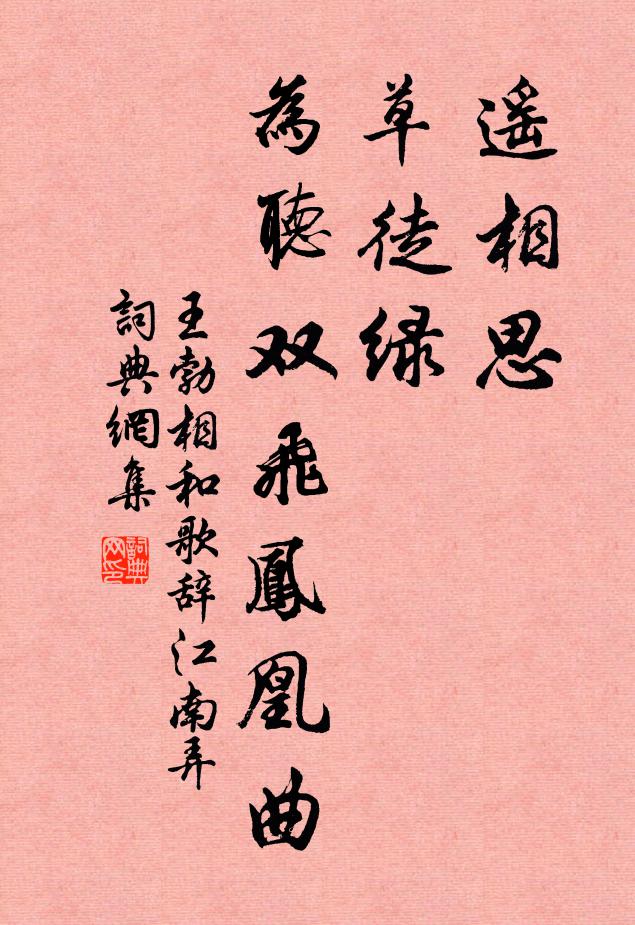 遥相思
草徒绿
為聽双飛鳳凰曲
王勃相和歌辞江南弄
詞典網集
詞典
网印